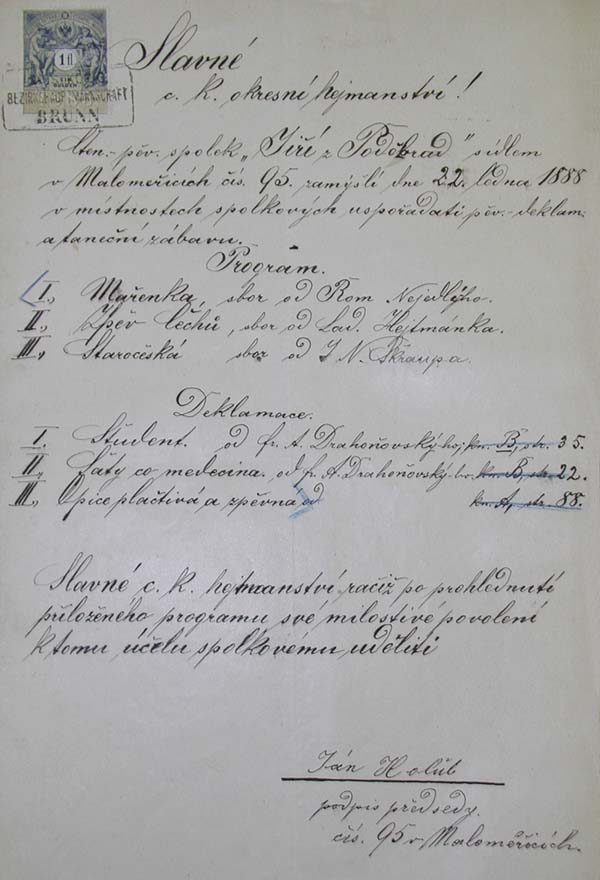 1 fl
BEZIRKSHAUPTMANNSCHAFT
BRÜNN
Slavné
c. k. okresní hejmanství!
Čten.- pěv. spolek „Jiří z Poděbrad" sídlem
v Maloměřicích čís. 95. zamýšlí dne 22. ledna 1888
v místnostech spolkových uspořádati pěv.- deklam.
a taneční zábavu.
Program.
I., Mařenka, sbor od Rom Nejedlýho.
II., Zpěv Čechů, sbor od Lad. Hejtmánka.
III., Staročeská sbor od J. N. Škraupa.
Deklamace.
I. Student. od fr. A. Drahoňovskýho, kn. B, str. 35.
II., Šáty co medecina. od fr. A. Drahoňovský-ho. kn. B, str. 22.
III., Opice plačtivá a zpěvna od kn. A, str. 88.
Slavné c. k. hejmanství račiž po prohlednutí
přiloženého programu své milostivé povolení
k tomu účelu spolkovému uděliti
Ján Holúb
podpis předsedy.
čís. 95 v Maloměřicích.